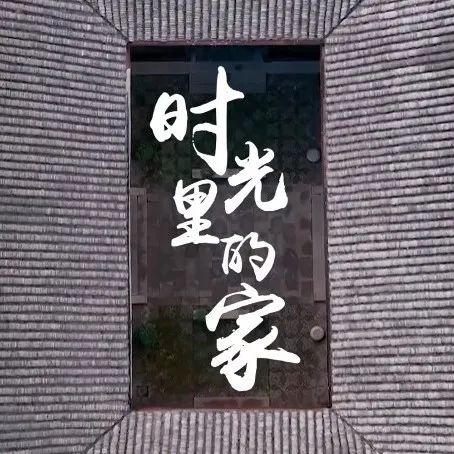 时光里的家